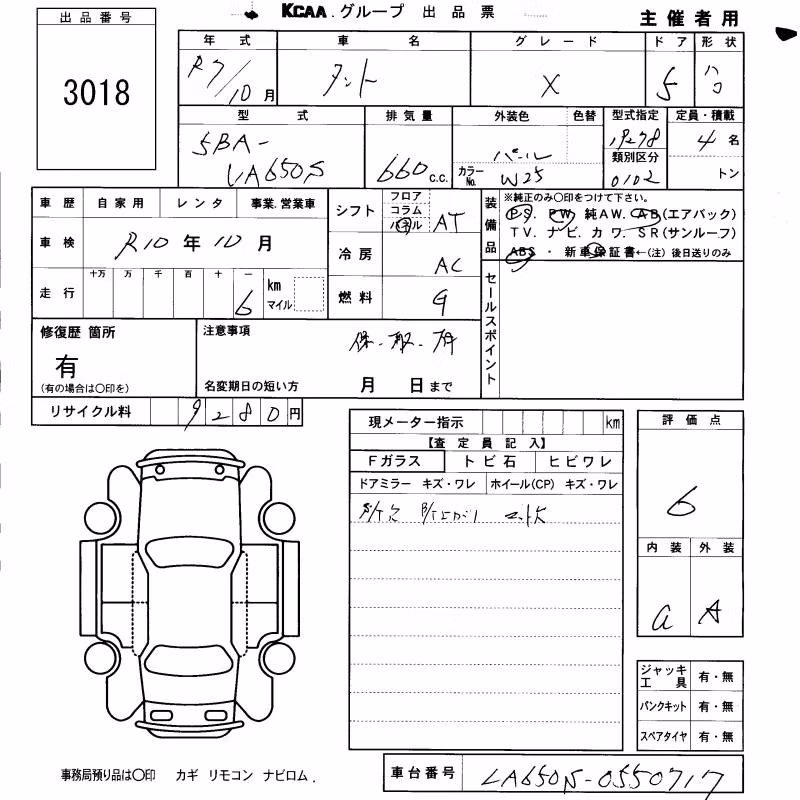 KCAA.グループ 出品票
主催者用
出品番号
3018
年式 車名 グレード ドア 形状
R7/10月 タント X 5 ハコ
型式 排気量 外装色 色替 型式指定 定員・積載
5BA- 660c.c. パール 19278 4名
LA650S カラーNo. W25 類別区分 0102 トン
車歴 自家用 レンタ 事業.営業車
車検 R10年10月
走行 十万 万 千 百 十 一 6 km マイル
シフト フロア コラム パネル AT
冷房 AC
燃料 G
装備品 ※純正のみ〇印をつけて下さい。
PS. PW. 純AW. AB(エアバック)
TV. ナビ. カワ. SR(サンルーフ)
ABS ・ 新車保証書←(注) 後日送りのみ
セールスポイント
修復歴 箇所
有
(有の場合は〇印を)
注意事項 保.取.有
名変期日の短い方 月 日まで
リサイクル料 9280円
現メーター指示 km
【査定員記入】
Fガラス トビ石 ヒビワレ
ドアミラー キズ・ワレ ホイール(CP) キズ・ワレ
評価点
6
内装 外装
a A
ジャッキ工具 有・無
パンクキット 有・無
スペアタイヤ 有・無
事務局預り品は〇印 カギ リモコン ナビロム.
車台番号 LA650S-0550717